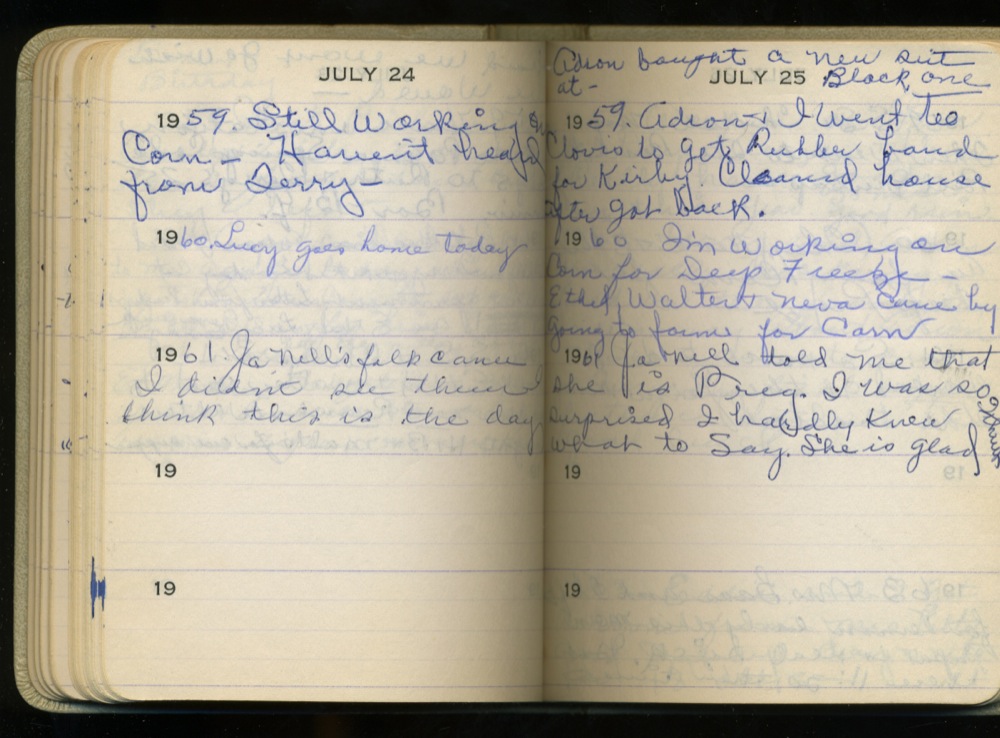 JULY 24
1959. Still Working on
Corn - Havent heard
from Jerry -
1960. Lucy goes home today
1961. Ja Nell's folks came
I didn't see them
think this is the day
19
19
Adron bought a new suit
at -
JULY 25 Black one
1959. Adron + I Went to
Clovis to get Rubber band
for Kirby. Cleaned house
after got back.
1960 I'm Working on
Corn for Deep Freeze -
Ethel, Walter + Neva Came by
Going to farm for Corn
1961 Ja Nell told me that
she is Preg. I was so
surprised I hardly Knew
what to Say. She is glad
19
19